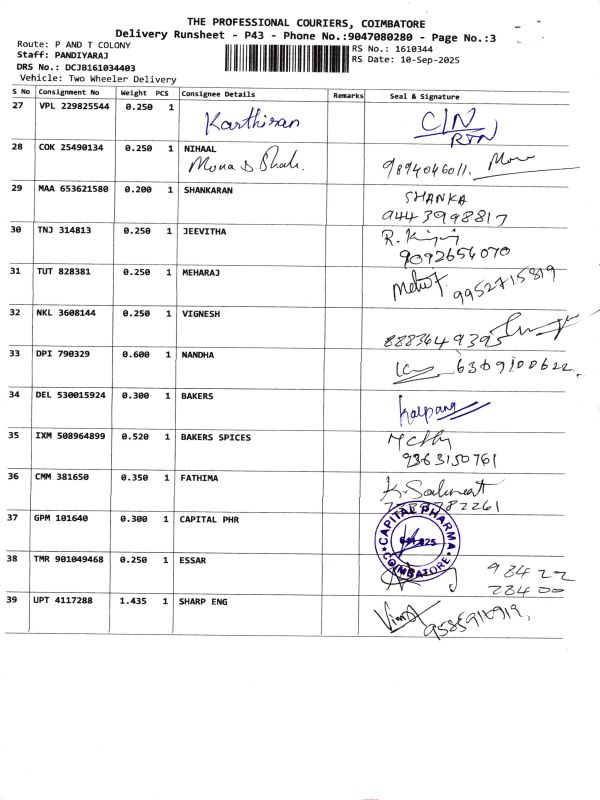 THE PROFESSIONAL COURIERS, COIMBATORE
Delivery Runsheet - P43 - Phone No.:9047080280 - Page No.:3
Route: P AND T COLONY
Staff: PANDIYARAJ
DRS No.: DCJB161034403
Vehicle: Two Wheeler Delivery
RS No.: 1610344
RS Date: 10-Sep-2025
S No Consignment No Weight PCS Consignee Details Remarks Seal & Signature
27 VPL 229825544 0.250 1 Karthiran C/N
RTN
28 COK 25490134 0.250 1 NIHAAL
Mona D Shah. 9894046011. Mona
29 MAA 653621580 0.200 1 SHANKARAN SHANKA
9443998817
30 TNJ 314813 0.250 1 JEEVITHA R.
9092656070
31 TUT 828381 0.250 1 MEHARAJ 9952715819
32 NKL 3608144 0.250 1 VIGNESH
8883649395
33 DPI 790329 0.600 1 NANDHA 6369100622.
34 DEL 530015924 0.300 1 BAKERS Kalpana
35 IXM 508964899 0.520 1 BAKERS SPICES
9363150761
36 CMM 381650 0.350 1 FATHIMA K.
37 GPM 101640 0.300 1 CAPITAL PHR CAPITAL PHARMA
COIMBATORE
38 TMR 901049468 0.250 1 ESSAR 98422
28400
39 UPT 4117288 1.435 1 SHARP ENG